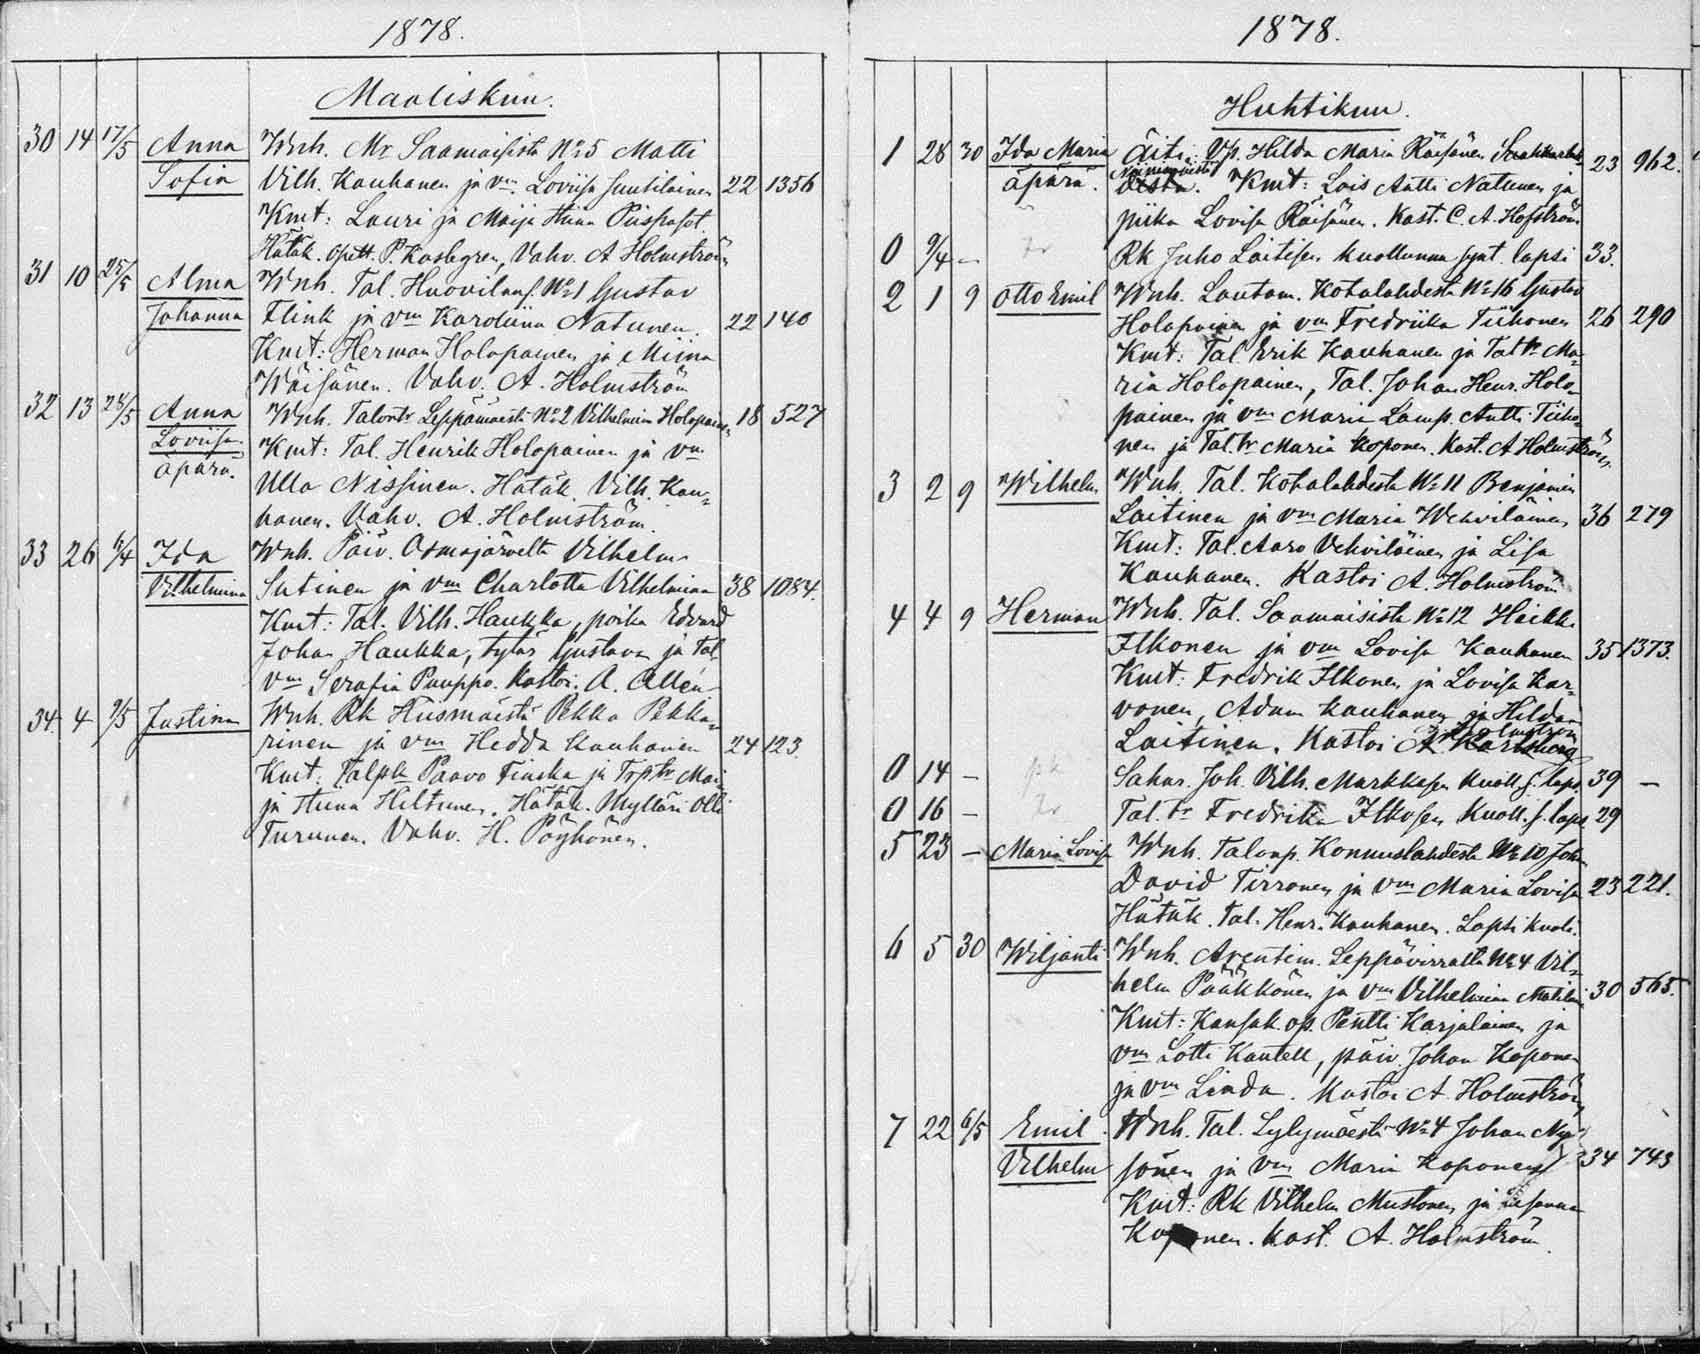 1878.
Maaliskuu.
30 14 17/5 Anna Wnh. Mr Saamaisista No 5 Matti
Sofia Vilh. Kauhanen ja vm Loviisa Suutilainen 22 1356
Kmt: Lauri ja Maija Stiina Piispaset.
Hätäk. opett. P. Kasbgren, Vahv. A Holmström
31 10 25/5 Alma Wnh. Tal. Huovilans. No 1 Gustav
Johanna Flink ja vm Karoliina Natunen. 22 140
Kmt: Herman Holopainen ja Miina
Wäisänen. Vahv. A. Holmström
32 13 28/5 Anna Wnh. Talontr Leppämäestä No 2 Vilhelmiin Holopainen 18 527
Loviisa Kmt: Tal. Henrik Holopainen ja vm
äpärä. Ulla Nissinen. Hätäk. Vilh. Kau-
hanen. Vahv. A. Holmström.
33 26 6/4 Ida Wnh. Päiv. Osmajärvelta Vilhelm
Vilhelmiina Sutinen ja vm Charlotta Vilhelmiina 38 1084.
Kmt: Tal. Vilh. Haukka, poika Edvard
Johan Haukka, tytär Gustava ja Tal.
vm Serafia Pauppo. Kastoi. A. Allen
34. 4 9/5 Justina Wnh. Rk Husmäestä Pekka Pekka-
rinen ja vm Hedda Kauhanen 24 123.
Kmt: Talpk Paavo Finska ja Trptr Mai-
ja Stiina Hiltunen. Hätäk. Mylläri Olli
Turunen. Vahv. H. Pöyhönen.
1878.
Huhtikuu.
1 28 30 Ida Maria Äiti: Vp. Hilda Maria Räisänen 23 962.
äpärä. Kmt: Lois Antti Natunen ja
piika Lovisa Räisänen. Kast. C. A. Hofström
0 9/4 – Rk Juho Laitisen kuolluna synt. lapsi 33.
2 1 9 Otto Emil Wnh. Lautam. Kotalahdesta No 16 Gustav
Holopainen ja vm Fredriika Tiihonen 26 290
Kmt: Tal. Erik Kauhanen ja Taltr Ma-
ria Holopainen, Tal. Johan Henr. Holo-
painen ja vm Maria Lamp. Antti Tiiho-
nen ja Tal.tr Maria Koponen. Kast. A Holmström.
3 2 9 Wilhelm Wnh. Tal. Kotalahdesta No 11 Benjamin
Laitinen ja vm Maria Wehviläinen 36 279
Kmt: Tal. Aaro Vehviläinen ja Lisa
Kauhanen. Kastoi A. Holmström
4 4 9 Herman Wnh. Tal. Saamaisista No 12 Heikki
Ilkonen ja vm Lovisa Kauhanen 35 1373.
Kmt: Fredrik Ilkonen ja Lovisa Kar-
vonen, Adam Kauhanen ja Hilda
Holmström
Laitinen. Kastoi A. Karlsberg
0 14 – Sahar. Joh. Vilh. Markkasen Kuoll. s. laps. 39 –
0 16 – Tal. tr Fredrika Ilkosen Kuoll. s. laps. 29
5 23 – Maria Lovisa Wnh. Talonp. Konnuslahdesta No 10 Joh.
David Tirronen ja vm Maria Lovisa 23 221.
Hätäk. Tal. Henr. Kauhanen. Lapsi kuoli.
6 5 30 Wiljanti Wnh. Arentim. Leppävirralta No 4 Vil-
helm Pääkkönen ja vm Vilhelmiina 30 565.
Kmt: Kansak. op. Pentti Karjalainen ja
vm Lotti Kantell, päiv. Johan Koponen
ja vm Linda. Kastoi A. Holmström,
7 22 6/5 Emil Wnh. Tal. Lylymäestä No 4 Johan Ny-
Vilhelm jönen ja vm Maria Koponen 34 743
Kmt: Rk Vilhelm Mustonen ja Susanna
Koponen. Kast. A. Holmström.